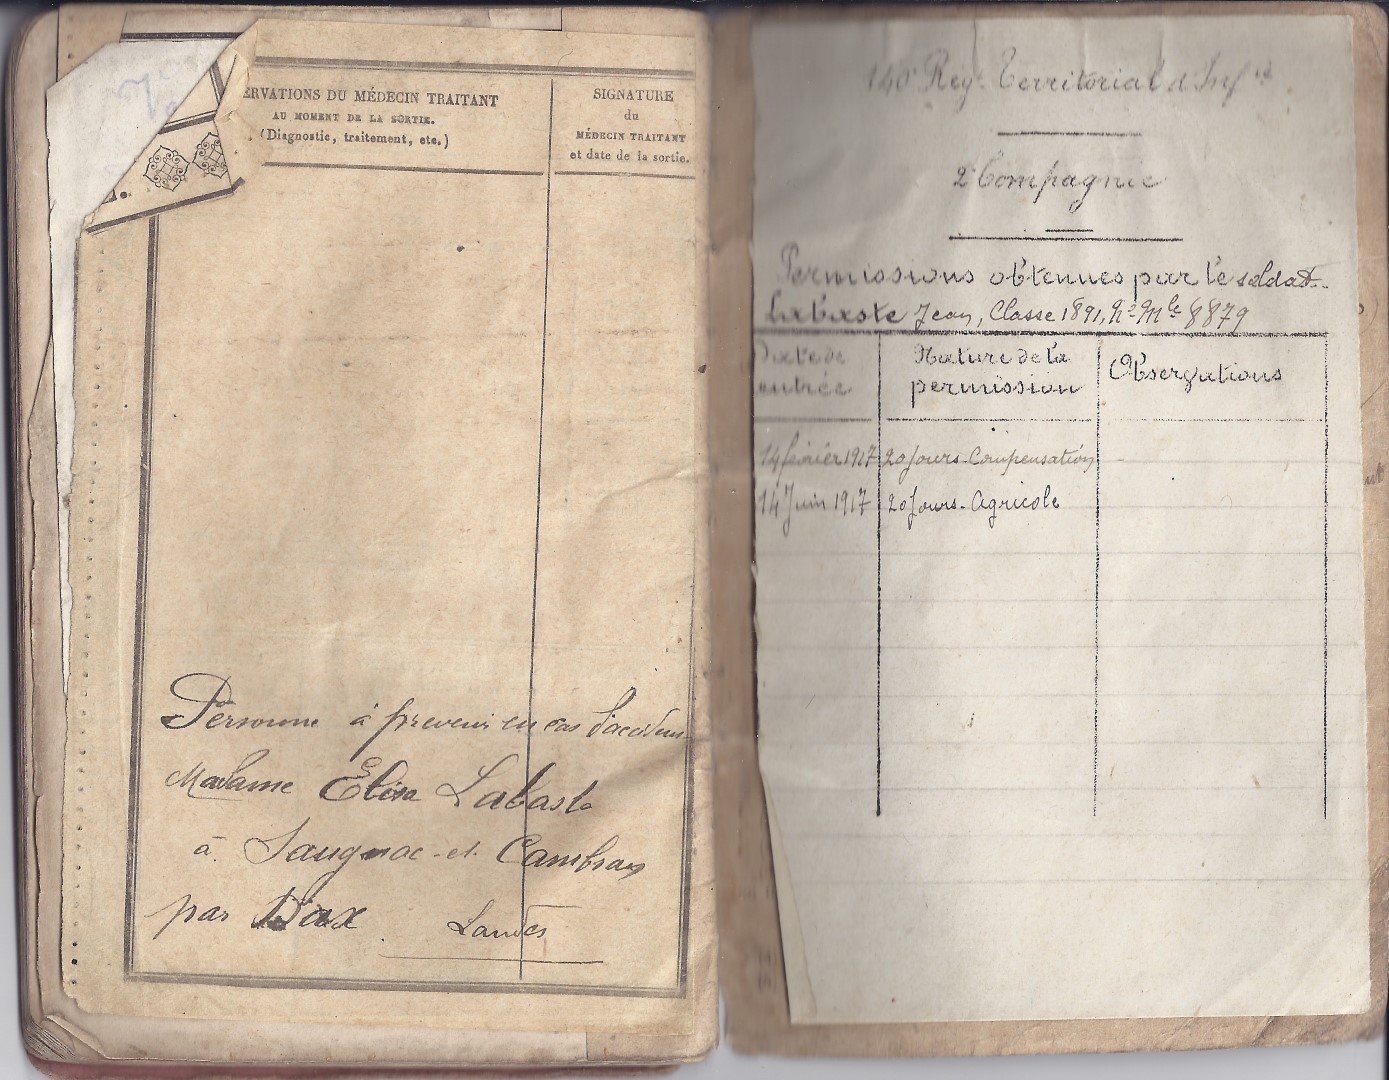 ERVATIONS DU MÉDECIN TRAITANT
AU MOMENT DE LA SORTIE.
(Diagnostic, traitement, etc.)
SIGNATURE
du
MÉDECIN TRAITANT
et date de la sortie.
Personne à prevenir en cas d'acciden
Madame Elisa Labaste
à Saugnac-et Cambran
par Dax Landes
140e Regt Territorial d'Infie
2e Compagnie
Permissions obtenues par le soldat
Labaste Jean, Classe 1891, No Mle 8879
Date de
entrée
Nature de la
permission
Observations
14 février 1917 20 Jours. Compensation
14 Juin 1917 20 Jours. Agricole